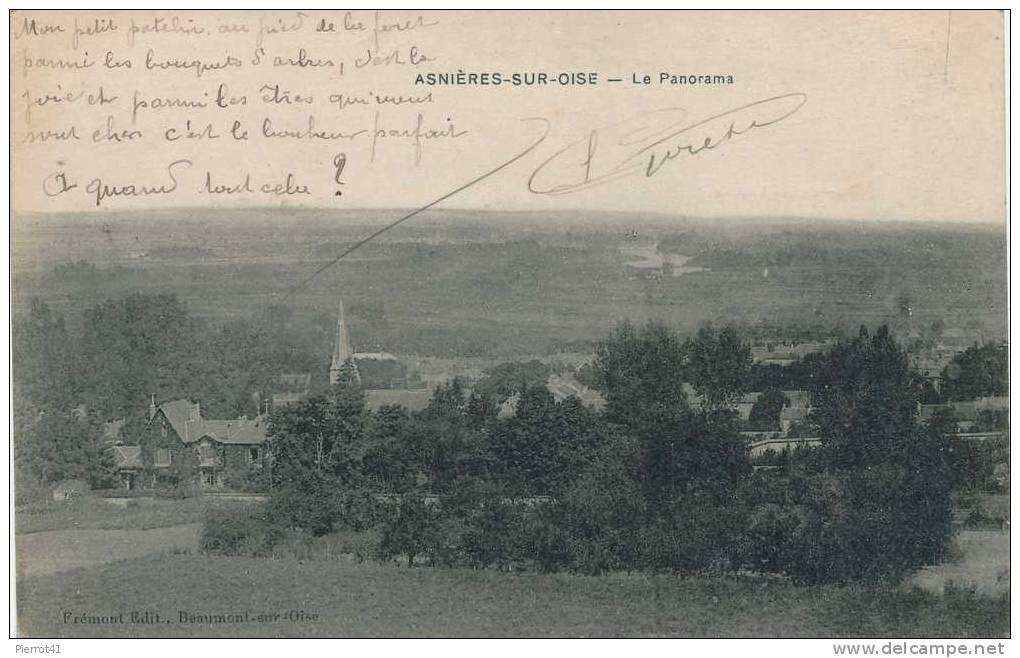 Mon petit patelin au pied de la foret
parmi les bouquets d'arbres, c'est la
joie et parmi les êtres qui vous
sont chers c'est le bonheur parfait
À quand tout cela ?
ASNIÈRES-SUR-OISE — Le Panorama
Frémont Edit., Beaumont-sur-Oise
Pierrot41
www.delcampe.net